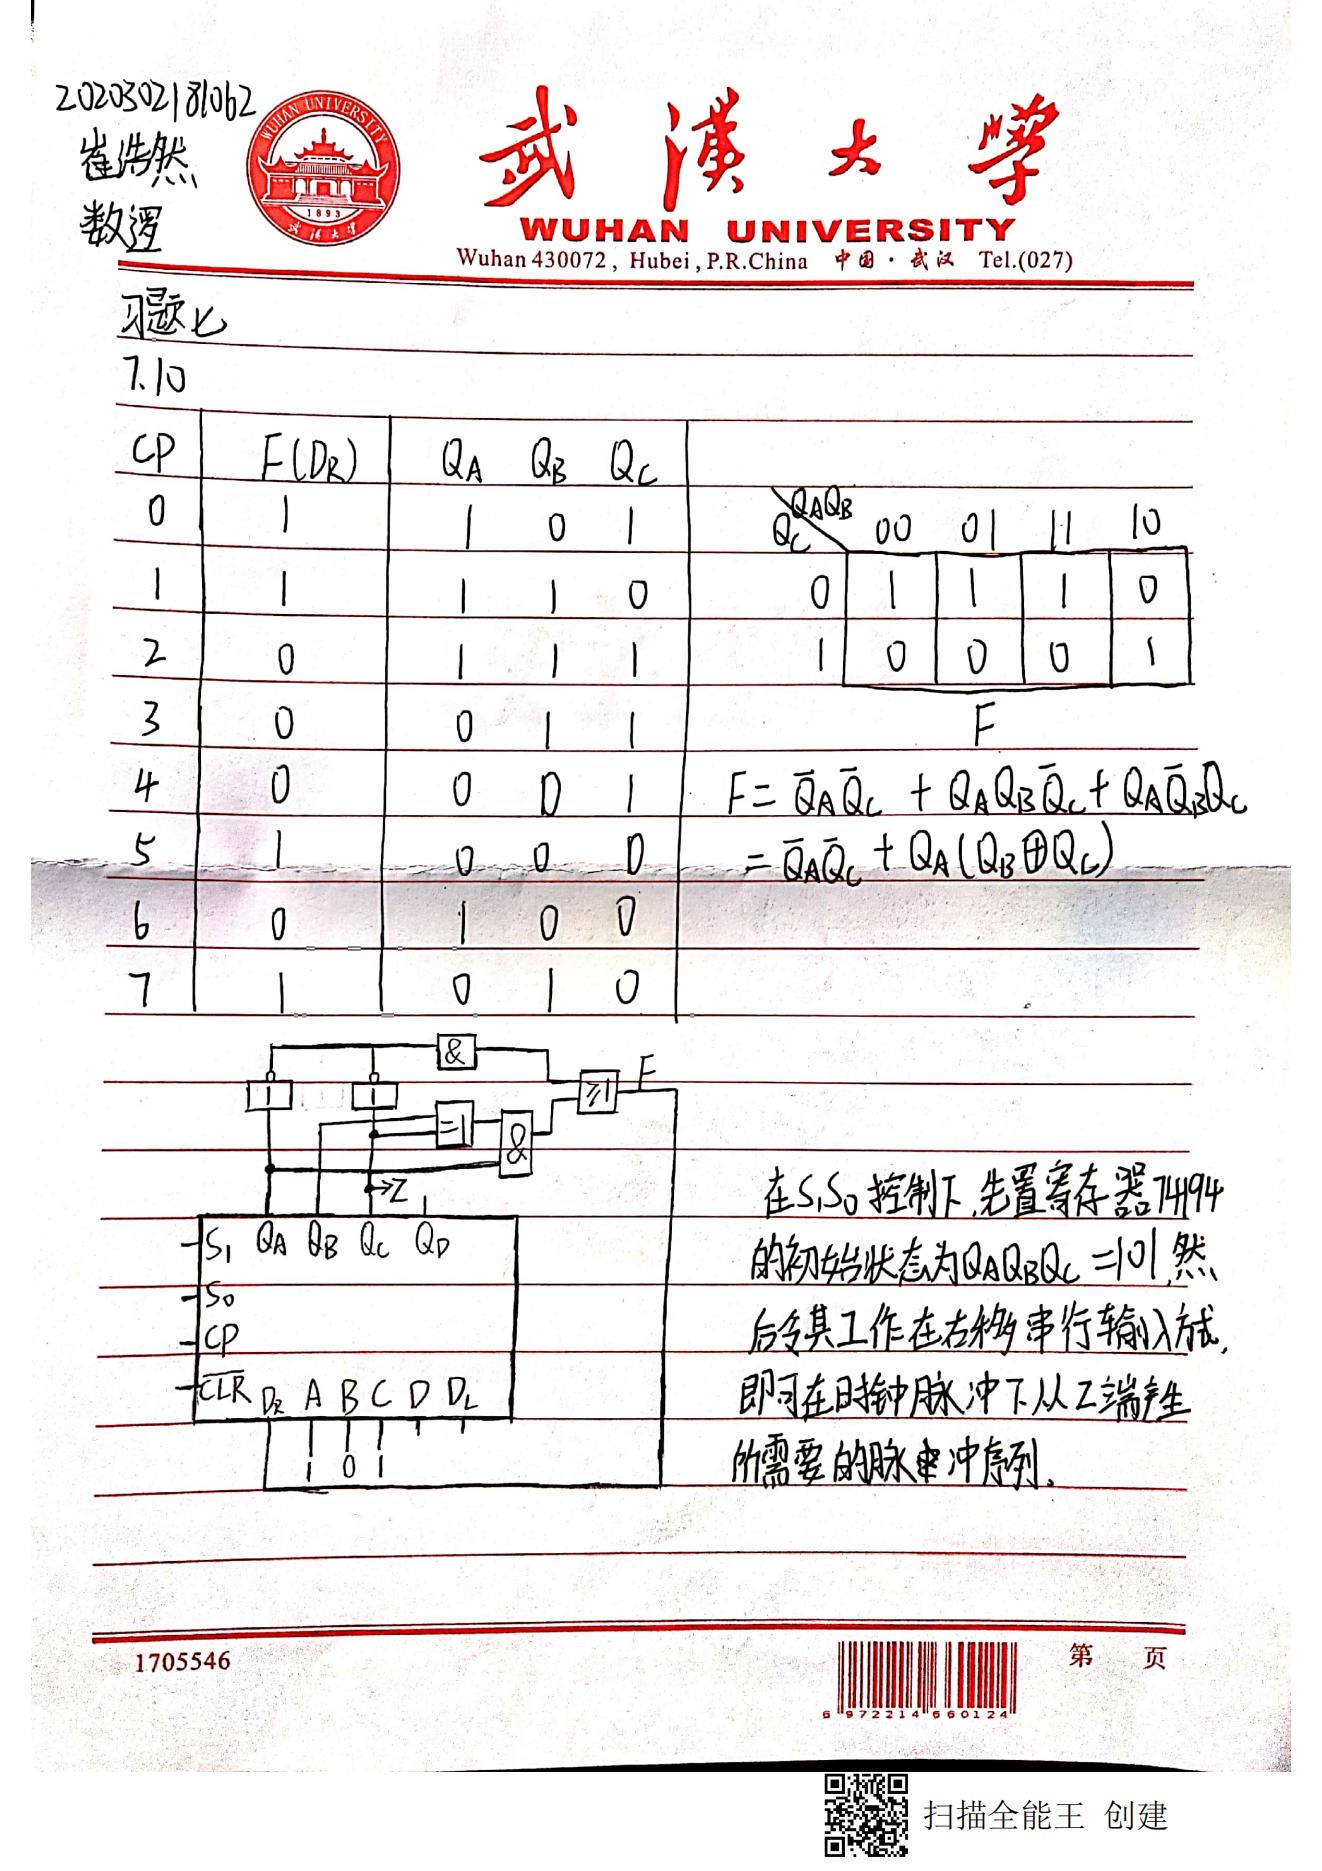 2020302181062
崔浩然
数逻
WUHAN UNIVERSITY
1893
武汉大学
武漢大學
WUHAN UNIVERSITY
Wuhan 430072, Hubei, P.R.China 中国·武汉 Tel.(027)
习题七
7.10
CP F(DR) QA QB QC
0 1 1 0 1
1 1 1 1 0
2 0 1 1 1
3 0 0 1 1
4 0 0 0 1
5 1 0 0 0
6 0 1 0 0
7 1 0 1 0
QAQB
QC 00 01 11 10
0 1 1 1 0
1 0 0 0 1
F
F = Q̄AQ̄C + QAQBQ̄C + QAQ̄BQC
= Q̄AQ̄C + QA(QB⊕QC)
& F
1 1 ≥1
=1 &
→Z
S1 QA QB QC QD
S0
CP
C̅L̅R̅ DR A B C D DL
1 0 1
在S1S0控制下,先置寄存器74194
的初始状态为QAQBQC=101,然
后令其工作在右移串行输入方式,
即可在时钟脉冲下从Z端产生
所需要的脉冲序列。
1705546
第 页
6 972214 660124
扫描全能王 创建